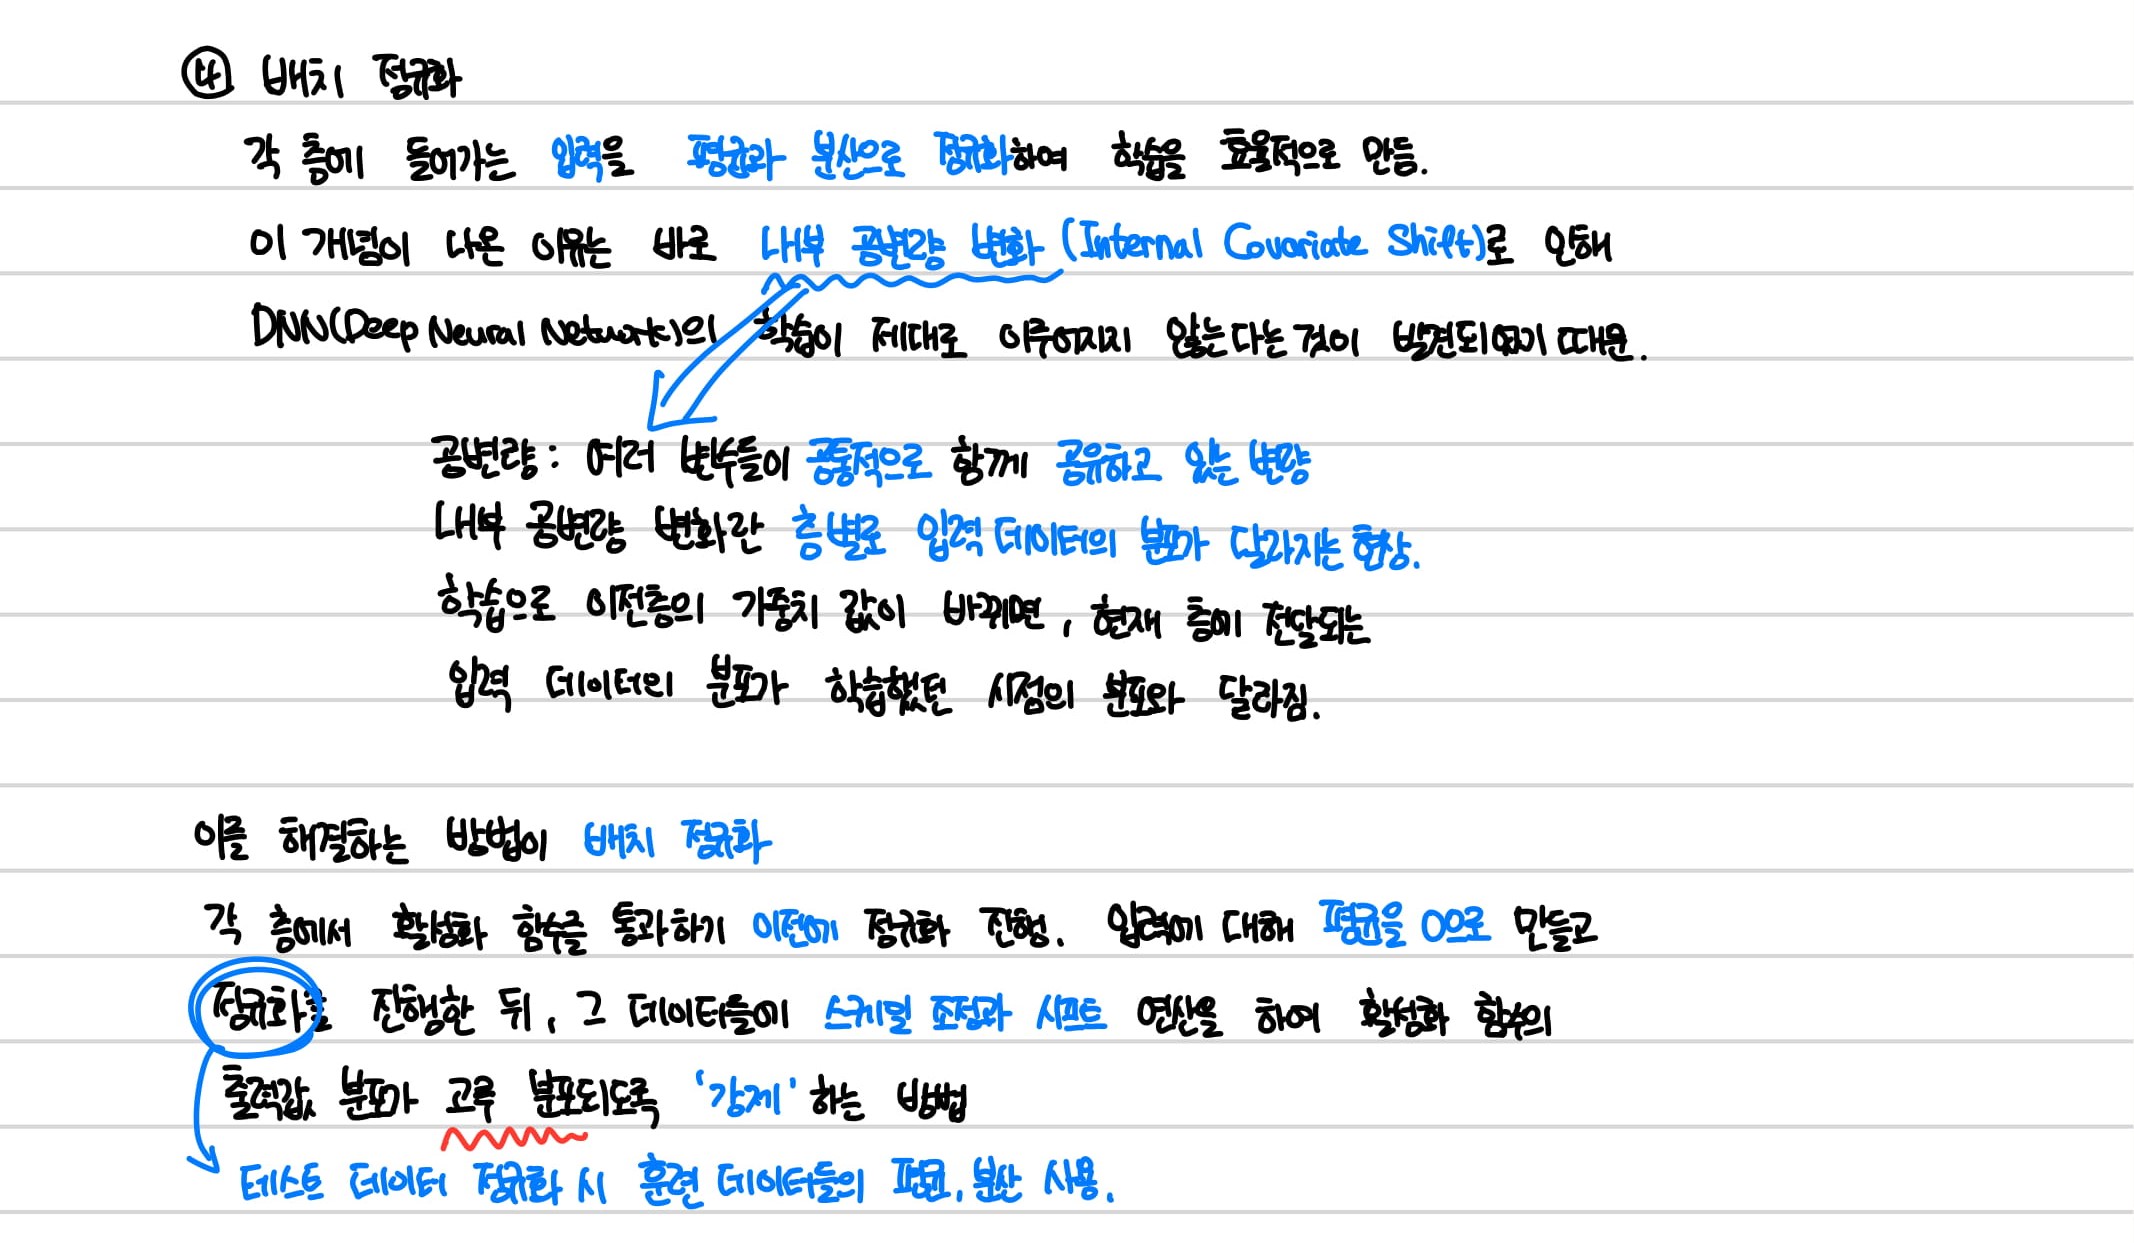 ④ 배치 정규화
각 층에 들어가는 입력을 평균과 분산으로 정규화하여 학습을 효율적으로 만듬.
이 개념이 나온 이유는 바로 내부 공변량 변화 (Internal Covariate Shift)로 인해
DNN(Deep Neural Network)의 학습이 제대로 이루어지지 않는다는 것이 발견되었기 때문.
공변량 : 여러 변수들이 공통적으로 함께 공유하고 있는 변량
내부 공변량 변화란 층별로 입력 데이터의 분포가 달라지는 현상.
학습으로 이전층의 가중치 값이 바뀌면, 현재 층에 전달되는
입력 데이터의 분포가 학습했던 시점의 분포와 달라짐.
이를 해결하는 방법이 배치 정규화
각 층에서 활성화 함수를 통과하기 이전에 정규화 진행. 입력에 대해 평균을 0으로 만들고
정규화를 진행한 뒤, 그 데이터들에 스케일 조정과 시프트 연산을 하여 활성화 함수의
출력값 분포가 고루 분포되도록 '강제' 하는 방법
테스트 데이터 정규화 시 훈련 데이터들의 평균, 분산 사용.